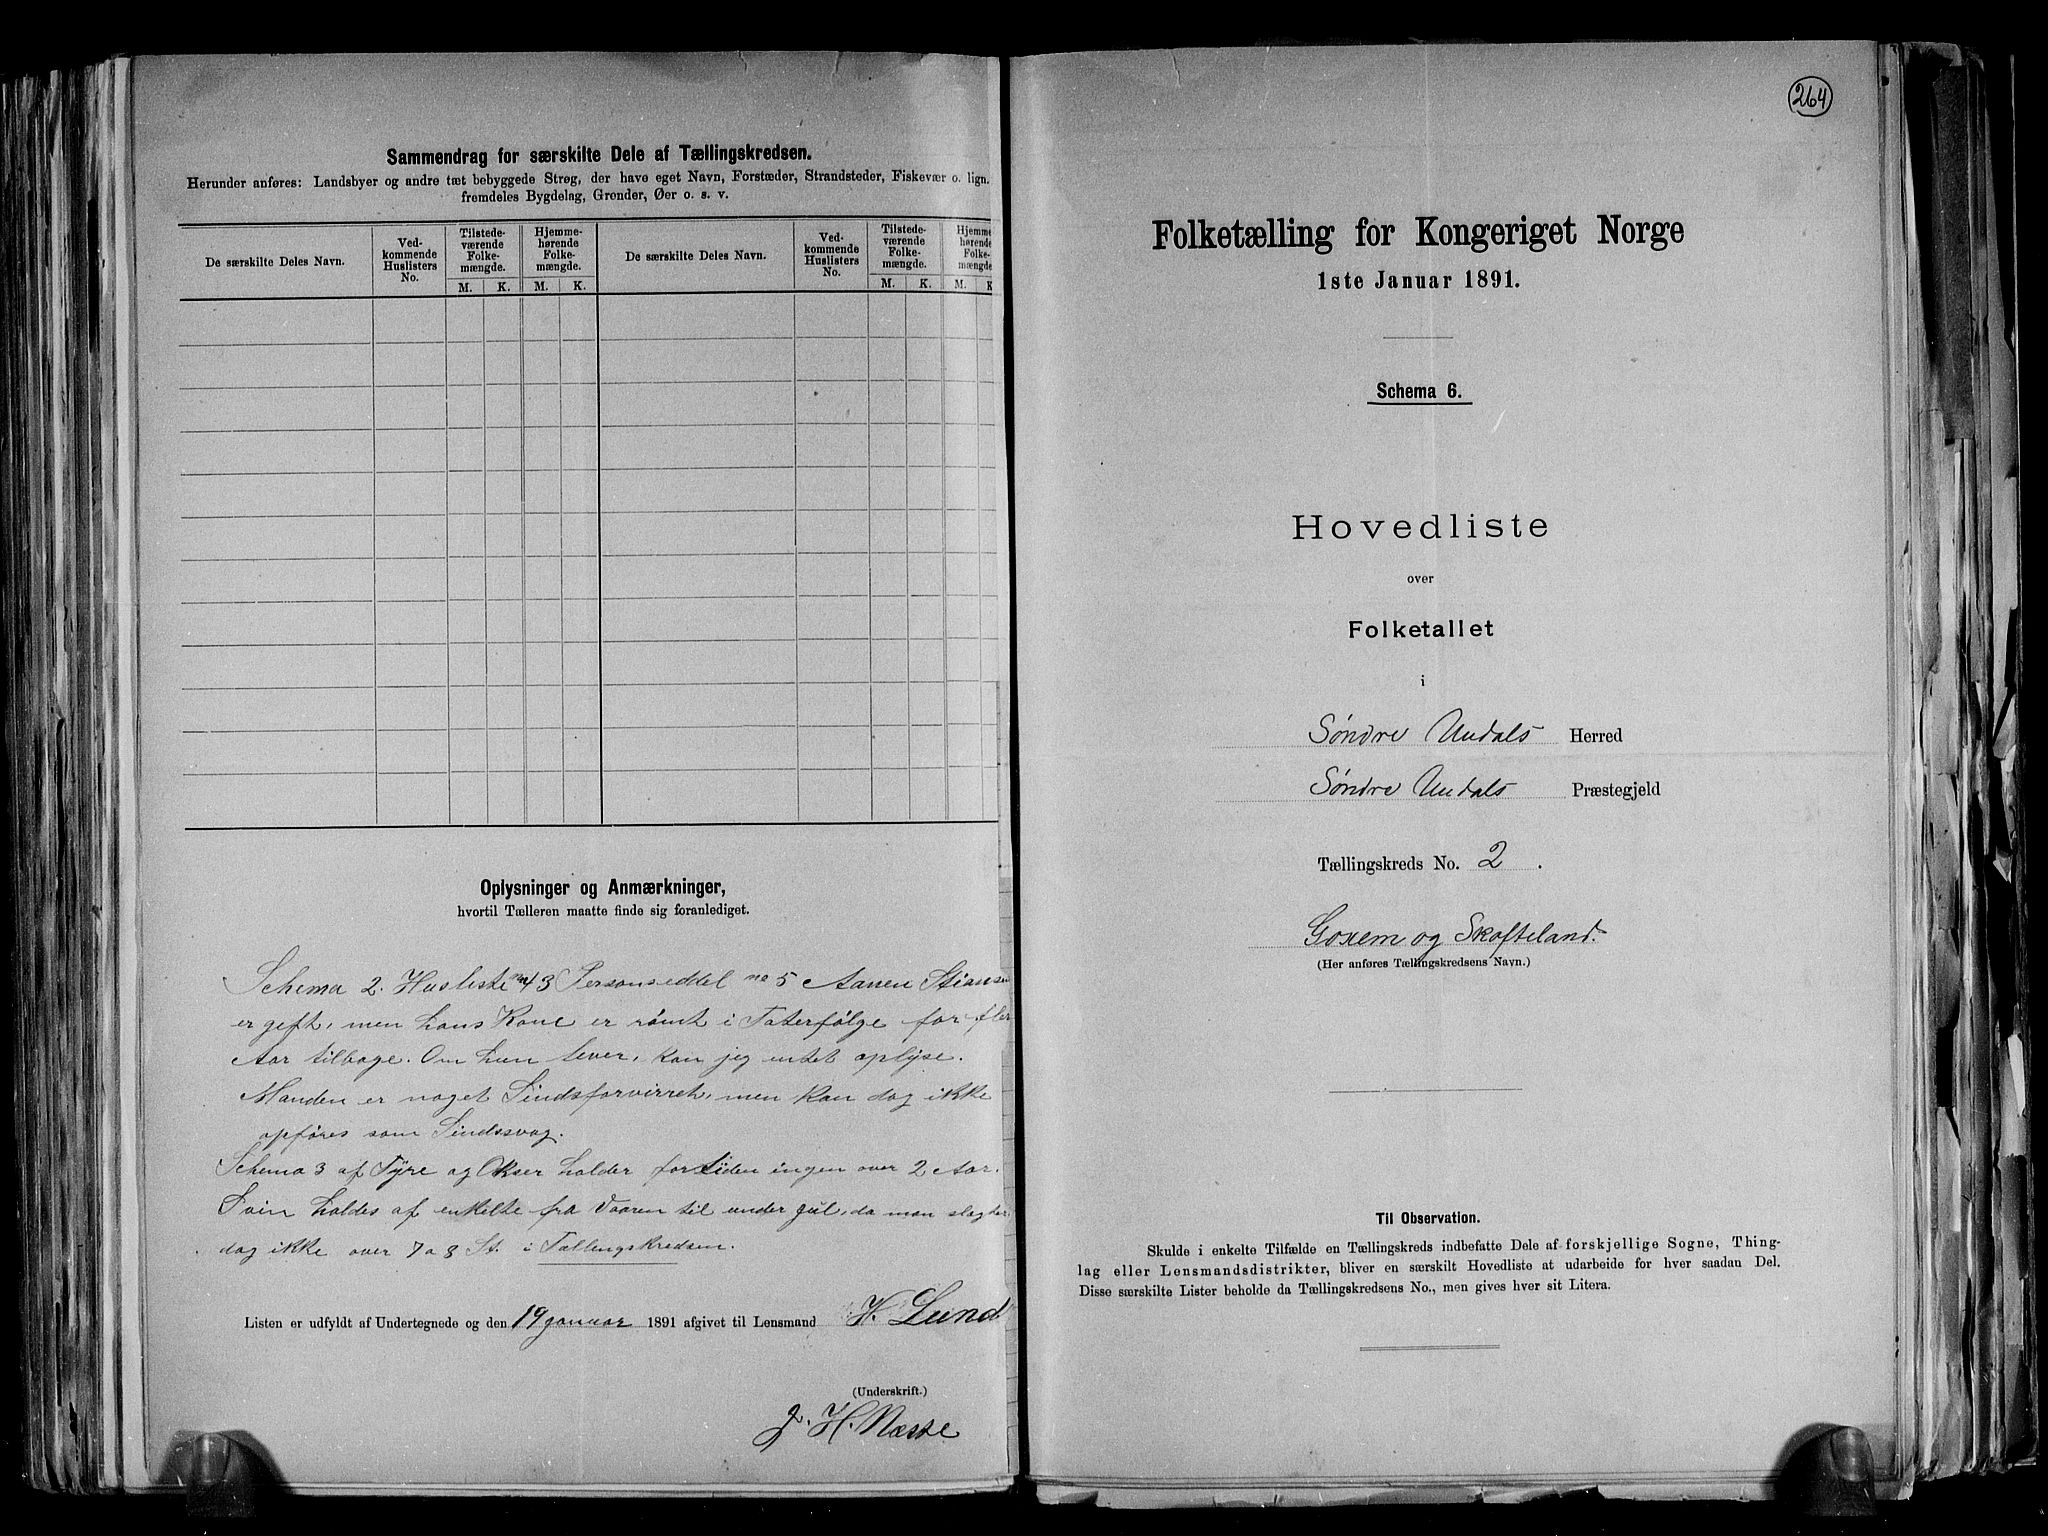 Sammendrag for særskilte Dele af Tællingskredsen.
Herunder anføres: Landsbyer og andre tæt bebyggede Strøg, der have eget Navn, Forstæder, Strandsteder, Fiskevær o. lign.
fremdeles Bygdelag, Grender, Øer o. s. v.
De særskilte Deles Navn.
Ved-
kommende
Huslisters
No.
Tilstede-
værende
Folke-
mængde.
Hjemme-
hørende
Folke-
mængde.
M. K. M. K.
De særskilte Deles Navn.
Ved-
kommende
Huslisters
No.
Tilstede-
værende
Folke-
mængde.
Hjemme
hørende
Folke-
mængde
M. K. M. K
Oplysninger og Anmærkninger,
hvortil Tælleren maatte finde sig foranlediget.
Schema 2. Husliste no 43 Personseddel no 5 Aanen Stians
er gift, men hans Kone er rømt i Taterfølge for fler
Aar tilbage. Om hun lever, kan jeg intet oplyse.
Manden er noget Sindsforvirret, men kan dog ikke
opføres som Sindssvag.
Schema 3 af Tyre og Okser holder for Tiden ingen over 2 Aar.
Svin holdes af enkelte fra Vaaren til under Jul, da man slagter
dog ikke over 7 a 8 St. i Tællingskredsen.
Listen er udfyldt af Undertegnede og den 19 Januar 1891 afgivet til Lensmand H. Lund
(Underskrift.)
J. H. Næsse
264
Folketælling for Kongeriget Norge
1ste Januar 1891.
Schema 6.
Hovedliste
over
Folketallet
i
Søndre Undals Herred
Søndre Undals Præstegjeld
Tællingskreds No. 2.
Goxem og Skofteland.
(Her anføres Tællingskredsens Navn.)
Til Observation.
Skulde i enkelte Tilfælde en Tællingskreds indbefatte Dele af forskjellige Sogne, Thing-
lag eller Lensmandsdistrikter, bliver en særskilt Hovedliste at udarbeide for hver saadan Del.
Disse særskilte Lister beholde da Tællingskredsens No., men gives hver sit Litera.